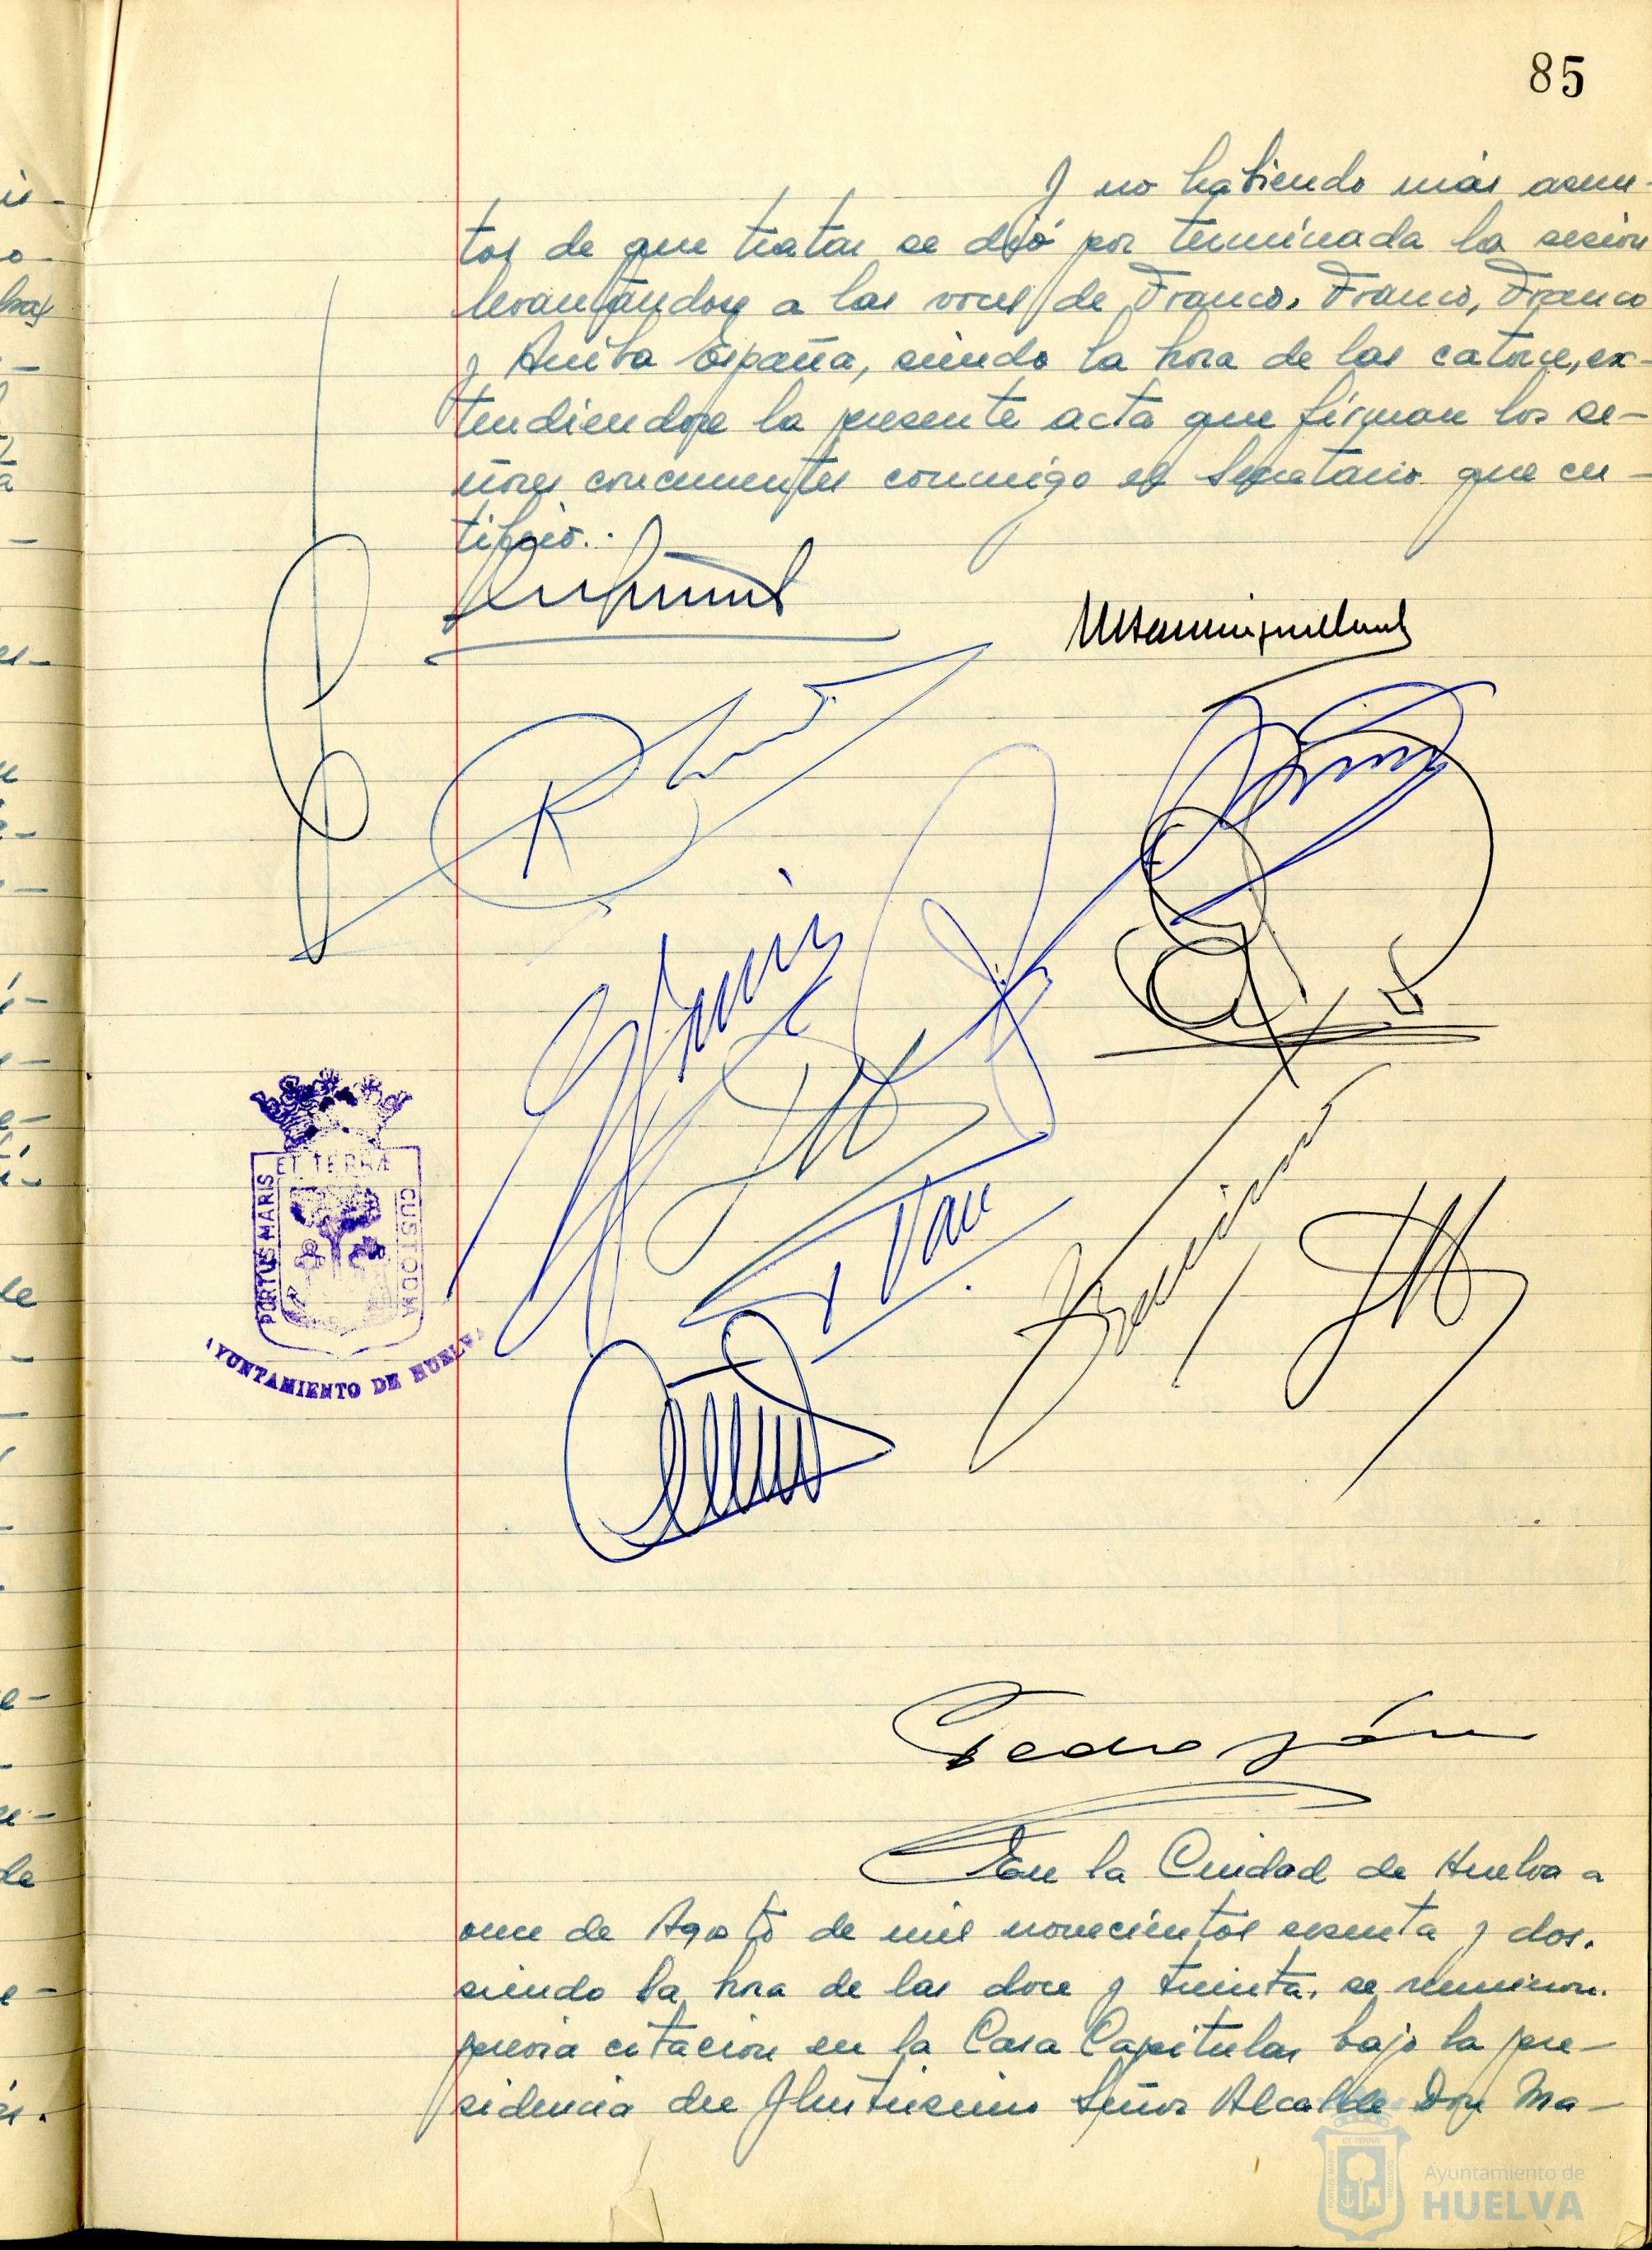 85
Y no habiendo más asun-
tos de que tratar se dió por terminada la sesión
levantándose a las voces de Franco, Franco, Franco
y Arriba España, siendo la hora de las catorce, ex-
tendiendose la presente acta que firman los se-
ñores concurrentes conmigo el Secretario que cer-
tifico.
ET TERRÆ
PORTUS MARIS
CUSTODIA
AYUNTAMIENTO DE HUELVA
Pedro
En la Ciudad de Huelva a
once de Agosto de mil novecientos sesenta y dos,
siendo la hora de las doce y treinta, se reunieron,
previa citación en la Casa Capitular bajo la pre-
sidencia del Ilustrisimo Señor Alcalde Don Ma-
Ayuntamiento de
HUELVA